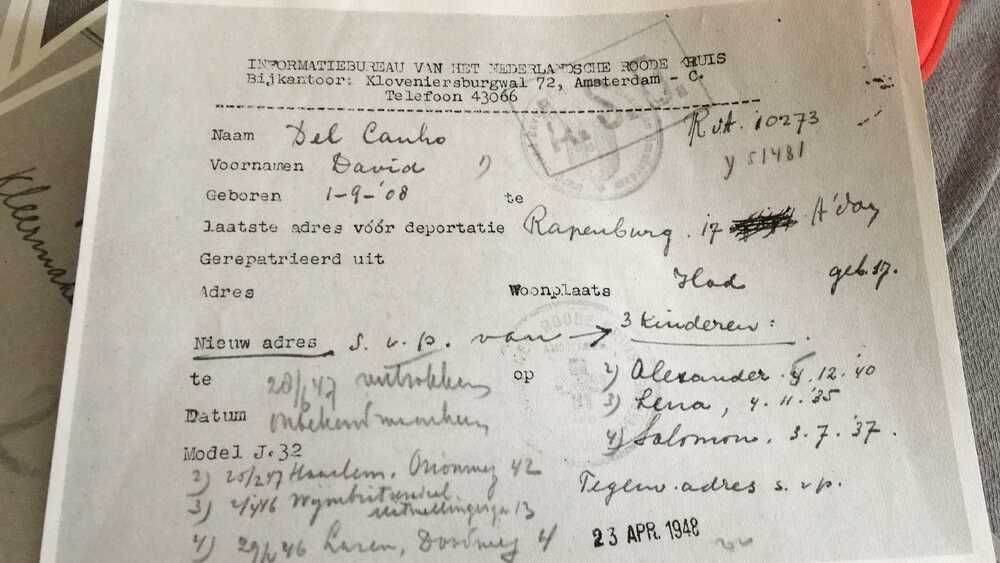 INFORMATIEBUREAU VAN HET NEDERLANDSCHE ROODE KRUIS
Bijkantoor: Kloveniersburgwal 72, Amsterdam - C.
Telefoon 43066
Naam Del Canho
RvA. 10273
Voornamen David 1)
y 51481
Geboren 1-9-'08 te
laatste adres vóór deportatie Rapenburg. 17 A'dam
Gerepatrieerd uit
Adres Woonplaats
geb. 17.
Nieuw adres s.v.p. van → 3 kinderen:
te 28/ 47 vertrokken op 2) Alexander. 12.'40
3) Lena, 4.11.'35
Datum onbekend
4) Salomon. 3.7.'37.
Model J.32
2) 25/2 47 Haarlem. 42
Tegenw. adres s.v.p.
3) 46 13
4) 29/ 46 Laren, 4
23 APR. 1948